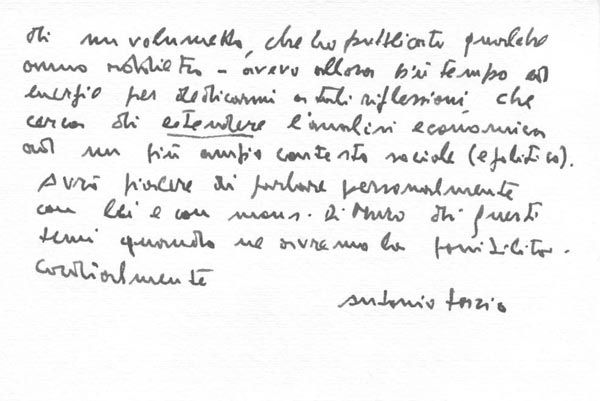 di un volumetto, che ho pubblicato qualche
anno addietro - avevo allora più tempo ed
energie per dedicarmi a tali riflessioni, che
cerca di estendere l'analisi economica
ad un più ampio contesto sociale (e politico).
Avrò piacere di parlare personalmente
con lei e con mons. Di Muro di questi
temi quando ne avremo la possibilità.
Cordialmente
Antonio Fazio